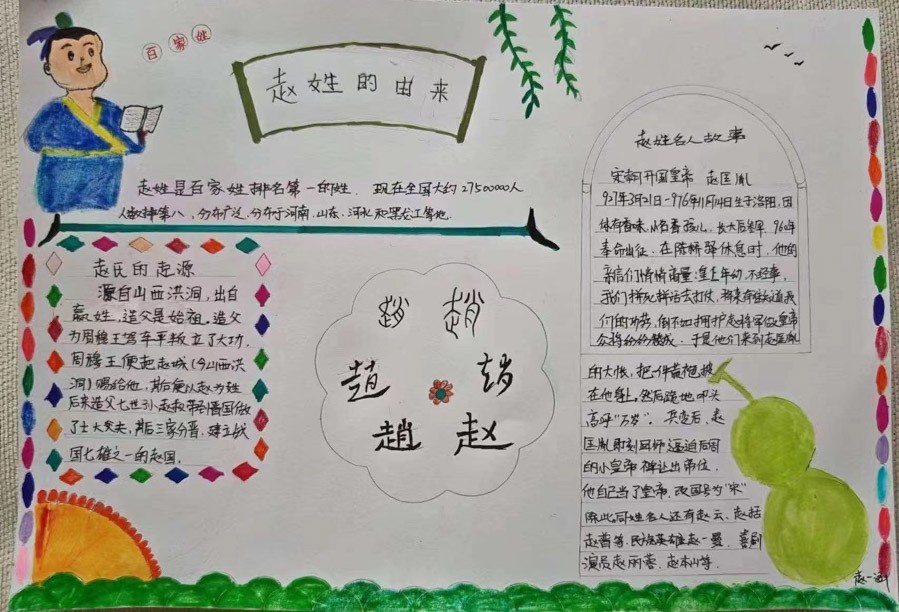 百家姓
赵姓的由来
赵姓是百家姓排名第一的姓. 现在全国大约27500000人
人数排第八, 分布广泛.分布于河南、山东、河北和黑龙江等地.
赵氏的起源
源自山西洪洞, 出自
嬴姓, 造父是始祖. 造父
为周穆王驾车平叛立了大功,
周穆王便把赵城(今山西洪
洞)赐给他, 其后便以赵为姓
后来造父七世孙赵叔带到晋国做
了士大夫, 其后三家分晋, 建立战
国七雄之一的赵国.
趙 趙
趙
趙 赵
赵姓名人故事
宋朝开国皇帝 赵匡胤
927年3月21日-976年11月14日生于洛阳, 因
体有香味, 小名香孩儿, 长大后参军. 960年
奉命出征. 在陈桥驿休息时, 他的
亲信们悄悄商量:皇上年幼, 不经事,
我们拼死拼活去打仗, 将来有谁知道我
们的功劳, 倒不如拥护赵将军做皇帝
众将纷纷赞成. 于是他们来到赵匡胤
的大帐, 把一件黄袍披
在他身上. 然后跪地叩头
高呼"万岁". 兵变后, 赵
匡胤即刻回师逼迫后周
的小皇帝禅让出帝位.
他自己当了皇帝, 改国号为"宋"
除此, 同姓名人还有赵云、赵括
赵普等. 民族英雄赵一曼、喜剧
演员赵丽蓉、赵本山等.
赵一涵